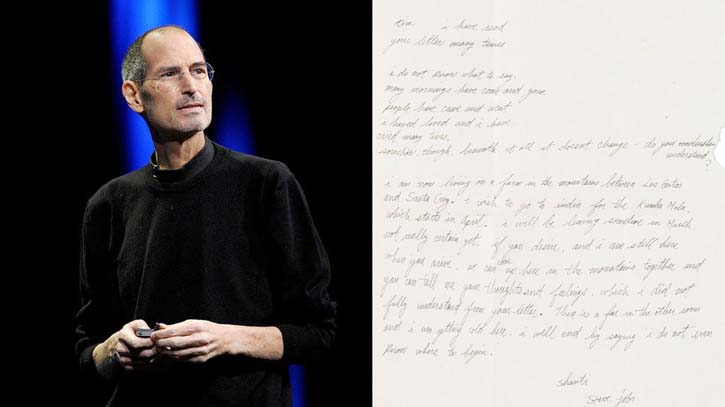 tim i have read
your letter many times
i do not know what to say.
many mornings have come and gone
people have came and went
i have loved and i have
cried many times.
somehow, though, beneath it all it doesn't change - do you
understand?
i am now living on a farm in the mountains between Los Gatos
and Santa Cruz. i wish to go to india for the Kumba Mela,
which starts in April. i will be leaving sometime in March,
not really certain yet. if you desire, and i am still here
when you arive, we can up here in the mountains together and
you can tell me your thoughts and feelings, which i did not
fully understand from your letter. There is a fire in the other room
and i am getting cold here. i will end by saying i do not even
know where to begin.
shanti
steve jobs